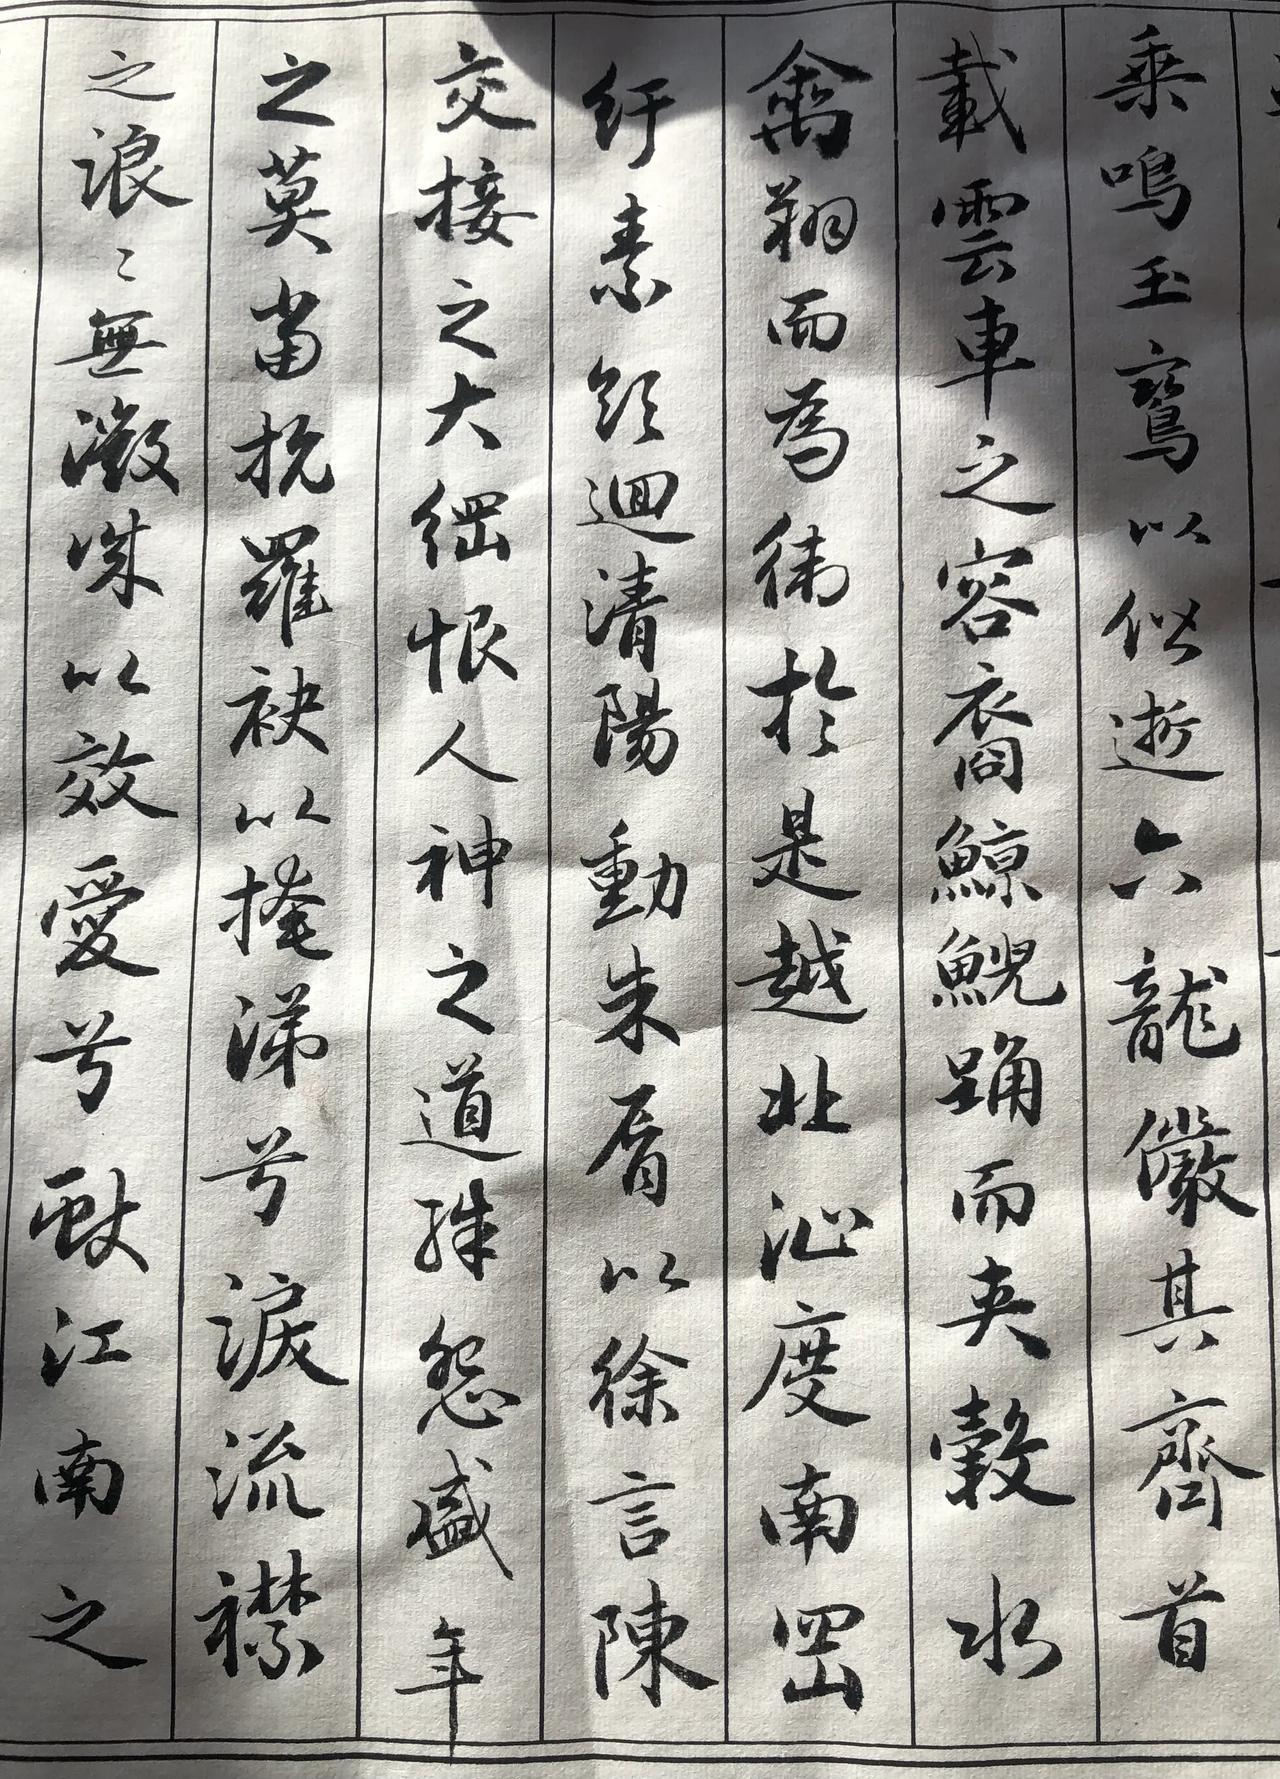 乘鳴玉鸞以偕逝六龍儼其齊首
載雲車之容裔鯨鯢踊而夾轂水
禽翔而為衛於是越北沚度南岡
紆素領迴清陽動朱脣以徐言陳
交接之大綱恨人神之道殊怨盛年
之莫當抗羅袂以掩涕兮淚流襟
之浪〻無微情以效愛兮獻江南之